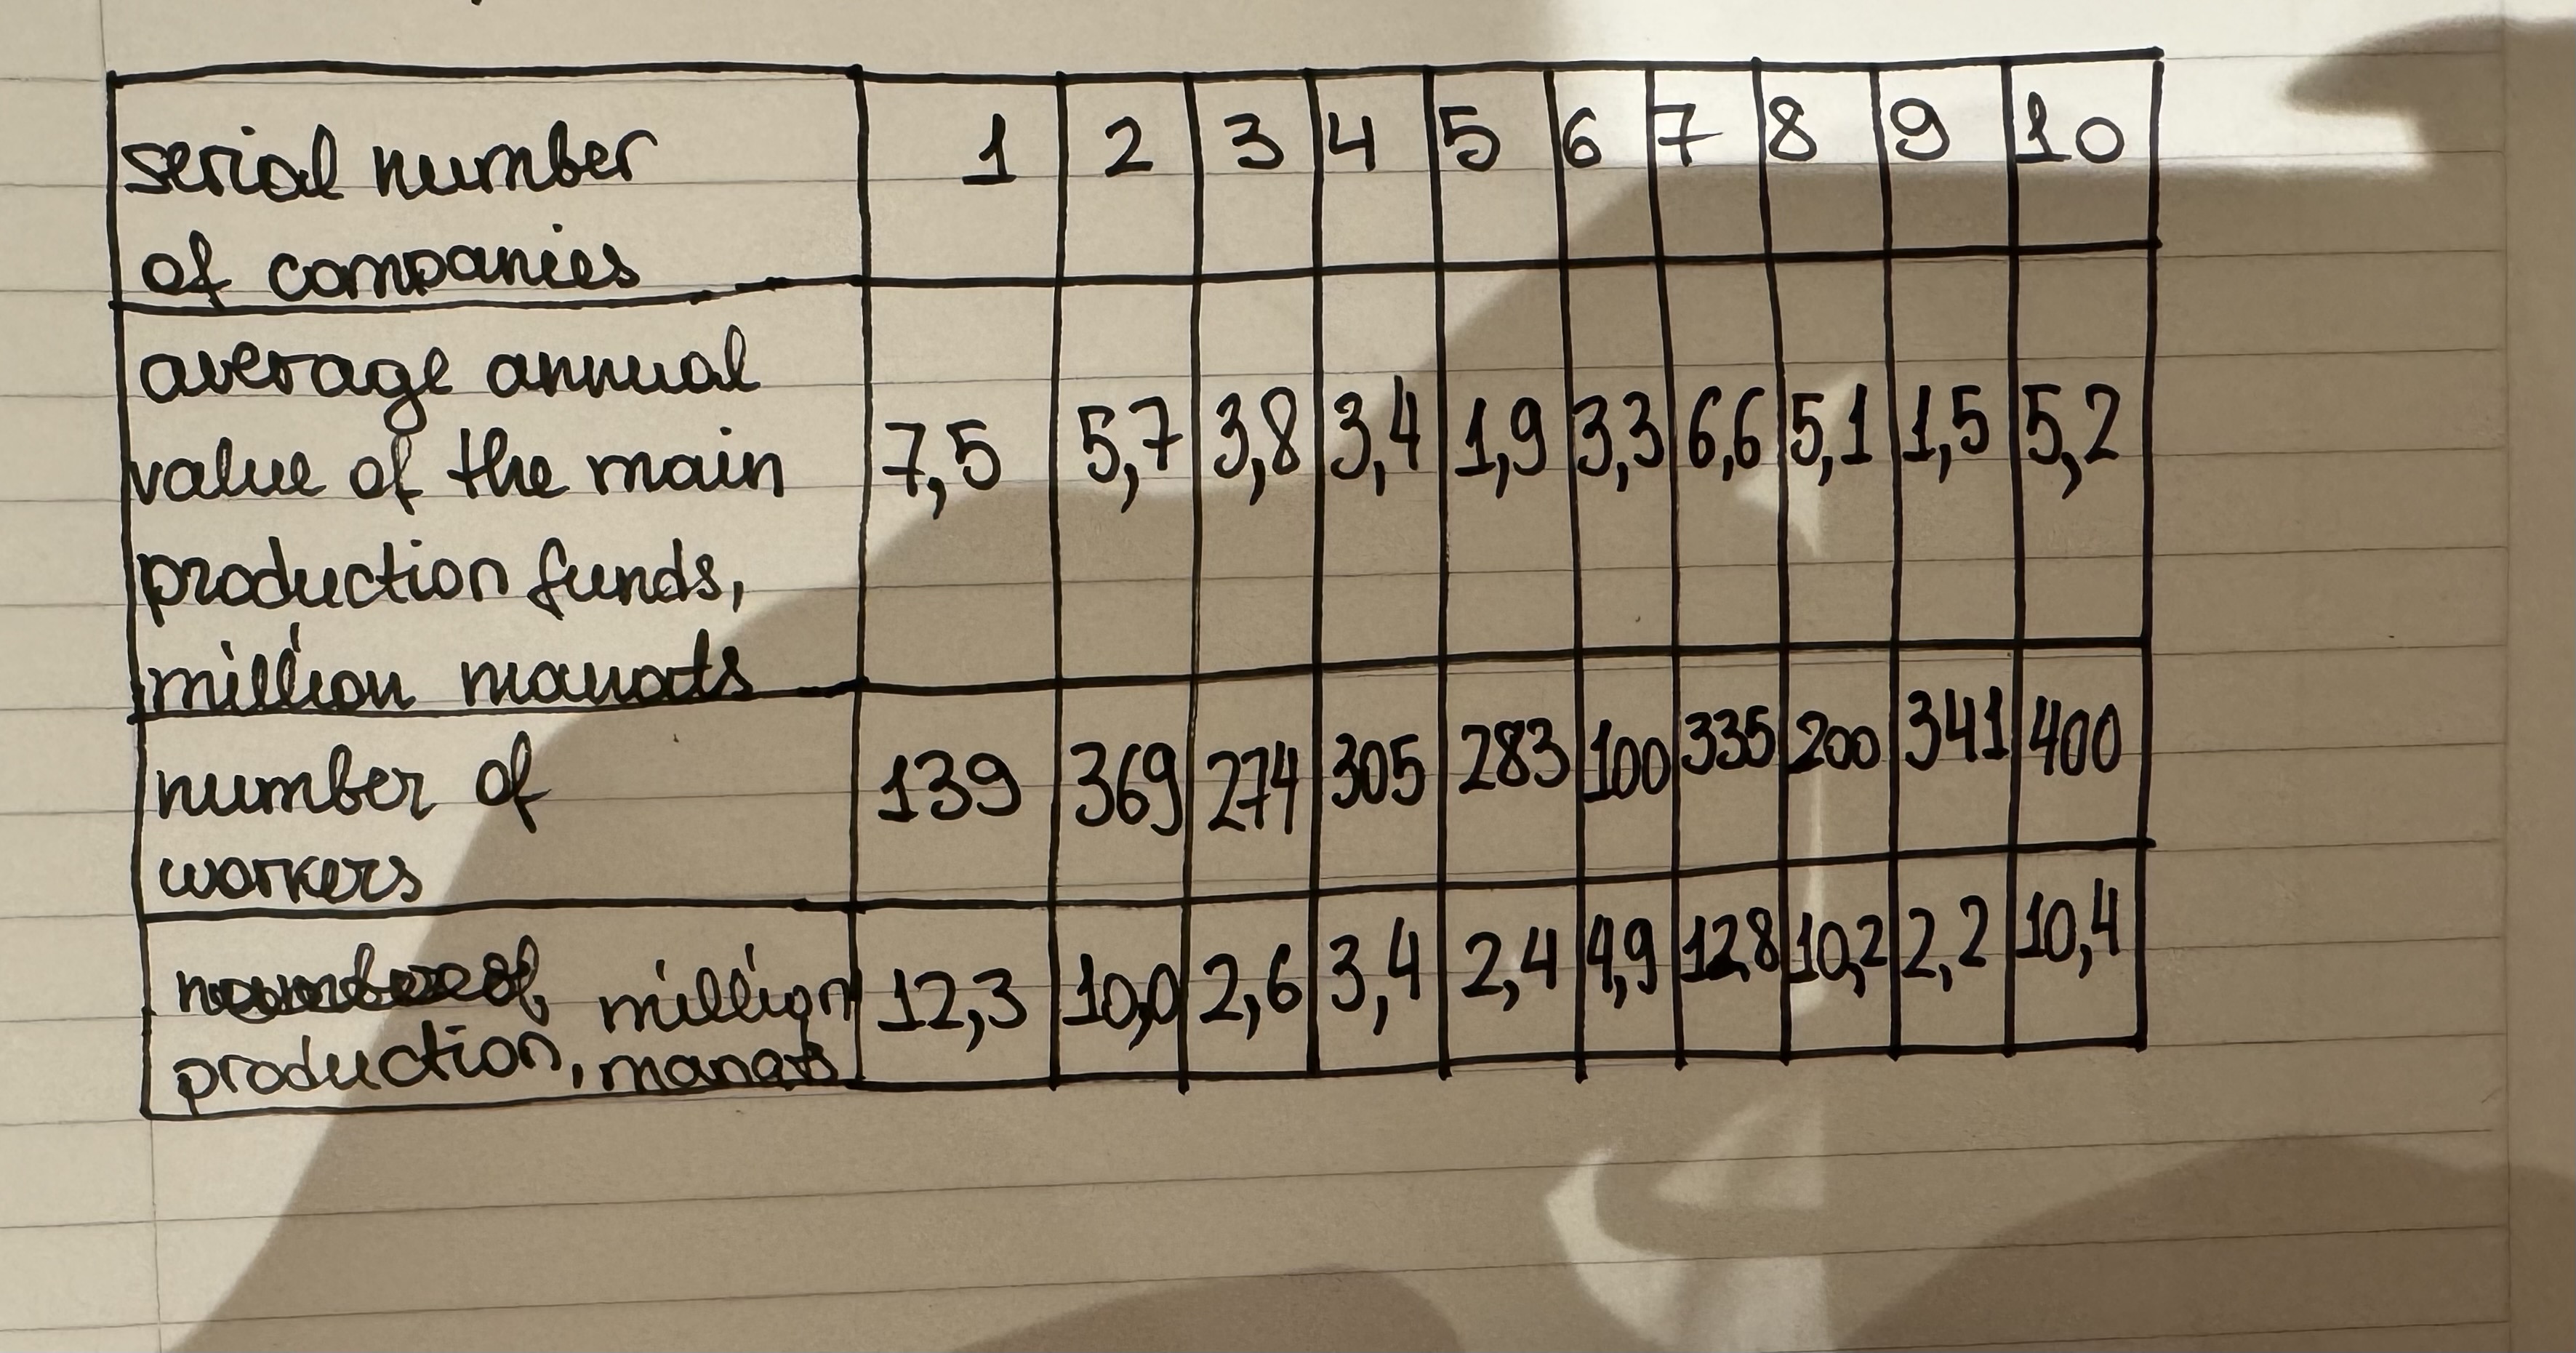 serial number 1 2 3 4 5 6 7 8 9 10
of companies
average annual
value of the main 7,5 5,7 3,8 3,4 1,9 3,3 6,6 5,1 1,5 5,2
production funds,
million manats
number of 139 369 274 305 283 100 335 200 341 400
workers
million 12,3 10,0 2,6 3,4 2,4 4,9 12,8 10,2 2,2 10,4
production, manats